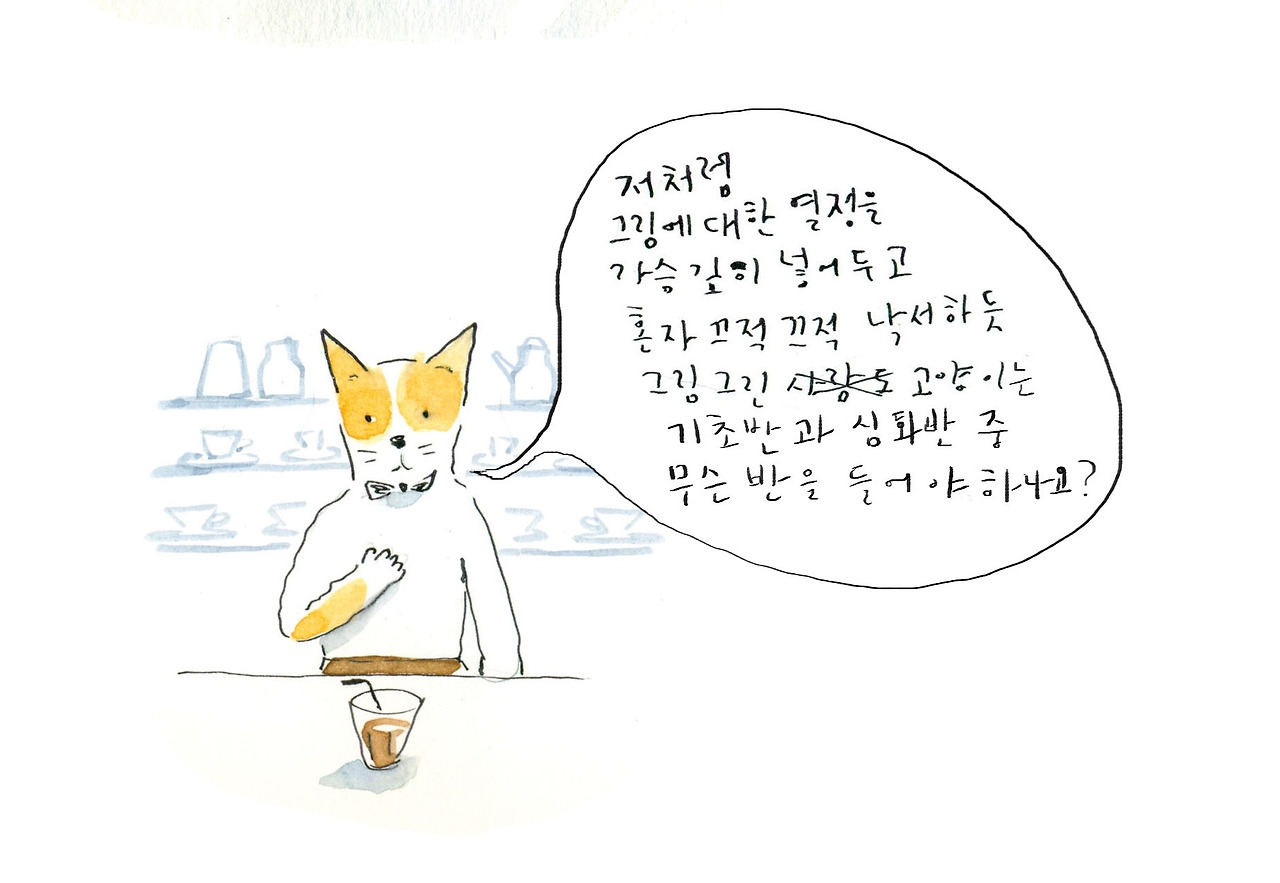 저처럼
그림에 대한 열정을
가슴 깊이 넣어두고
혼자 끄적 끄적 낙서하듯
그림 그린 사람도 고양이는
기초반과 심화반 중
무슨 반을 들어야 하나요?